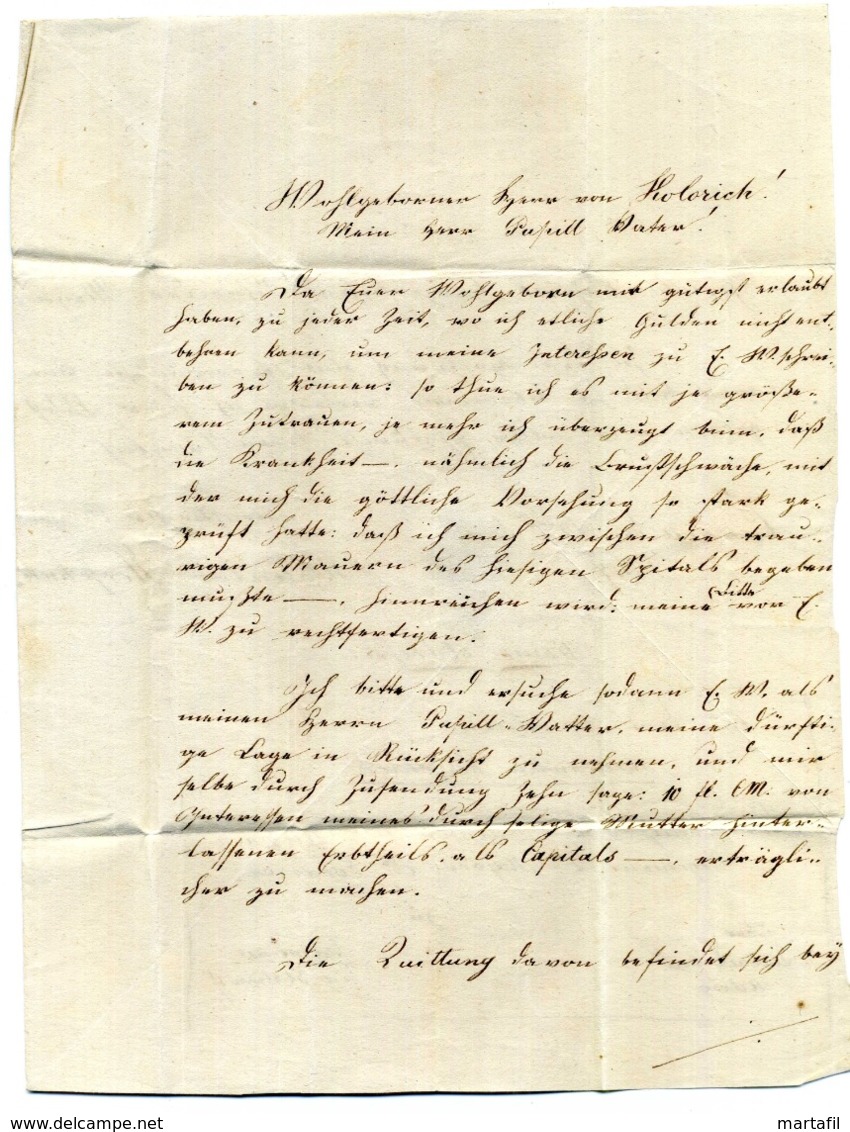 Wohlgeborner Herr von Kolorich!
Mein Herr Pupill Vater!
Da Euer Wohlgeborn mir gütigst erlaubt
haben, zu jeder Zeit, wo ich etliche Gulden nicht ent-
behren kann, um meine Interessen zu E. W. schrei-
ben zu können: so thue ich es mit je größe-
rem Zutrauen, je mehr ich überzeugt binn, daß
die Krankheit —, nähmlich die Brustschwäche, mit
der mich die göttliche Vorsehung so stark ge-
prüft hatte: daß ich mich zwischen die trau-
rigen Mauern des hiesigen Spitals begeben
mußte —, hinnreichen wird: meine Bitte vor E.
W. zu rechtfertigen.
Ich bitte und ersuche sodann E. W. als
meinen Herrn Pupill-Vatter, meine dürfti-
ge Lage in Rücksicht zu nehmen, und mir
selbe durch Zusendung zehn sage: 10 fl. CM. von
Interessen meines durch selige Mutter hinter-
lassenen Erbtheils, als Capitals —, erträgli-
cher zu machen.
Die Quittung davon befindet sich bey
martafil